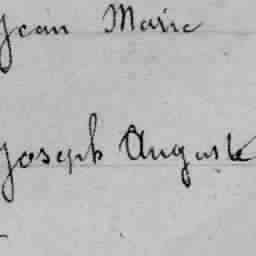 Jean Marie
Joseph Auguste